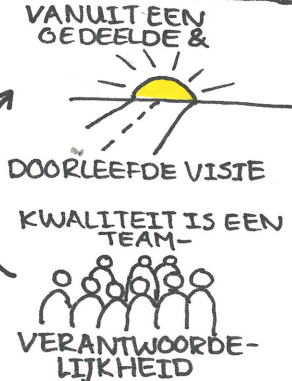 VANUIT EEN
GEDEELDE &
DOORLEEFDE VISIE
KWALITEIT IS EEN
TEAM-
VERANTWOORDE-
LIJKHEID